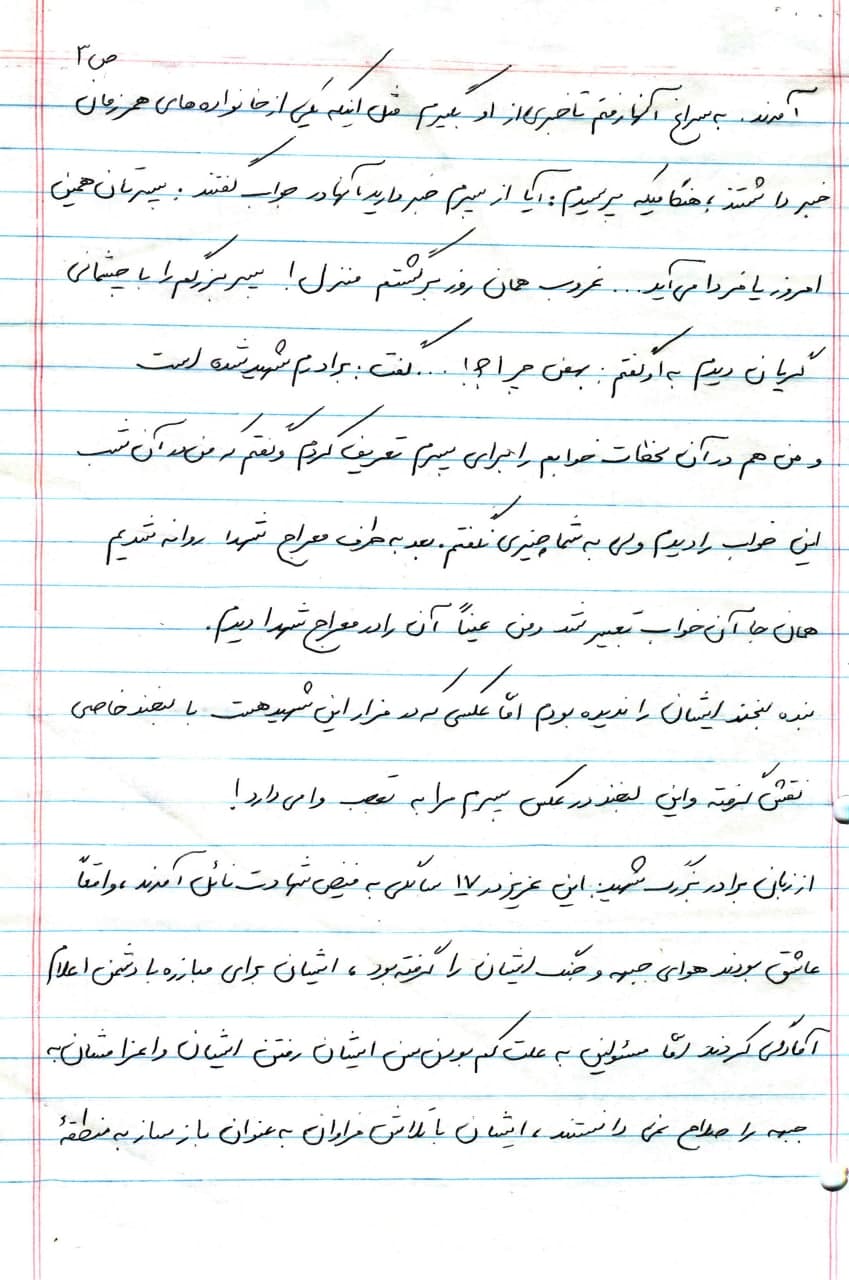 ص ۳
آمدند. به سراغ آنها رفتم تا خبری از او بگیرم مثل اینکه یکی از خانواده های همرزمان
خبر داشتند، هنگامیکه پرسیدم: آیا از پسرم خبر دارید آنها در جواب گفتند: پسرتان همین
امروز یا فردا می آید... غروب همان روز برگشتم منزل! پسر بزرگم را با چشمانی
گریان دیدم به او گفتم: بهمن چرا؟! ... گفت: برادرم شهید شده است
و من هم در آن لحظات خوابم را برای پسرم تعریف کردم و گفتم که من در آن شب
این خواب را دیدم ولی به شما چیزی نگفتم. بعد به طرف معراج شهدا روانه شدیم
همان جا آن خواب تعبیر شد و من عیناً آن را در معراج شهدا دیدم.
بنده لبخند ایشان را ندیده بودم امّا عکسی که در مزار این شهید هست با لبخند خاصی
نقش گرفته و این لبخند در عکس پسرم مرا به تعجب وا می دارد!
از زبان برادر بزرگ شهید: این عزیز در ۱۷ سالگی به فیض شهادت نائل آمدند، واقعاً
عاشق بودند هوای جبهه و جنگ ایشان را گرفته بود، ایشان برای مبارزه با دشمن اعلام
آمادگی کردند امّا مسئولین به علت کم بودن سن ایشان رفتن ایشان و اعزامشان به
جبهه را صلاح نمی دانستند، ایشان با تلاش فراوان به عنوان باز ساز به منطقهٔ